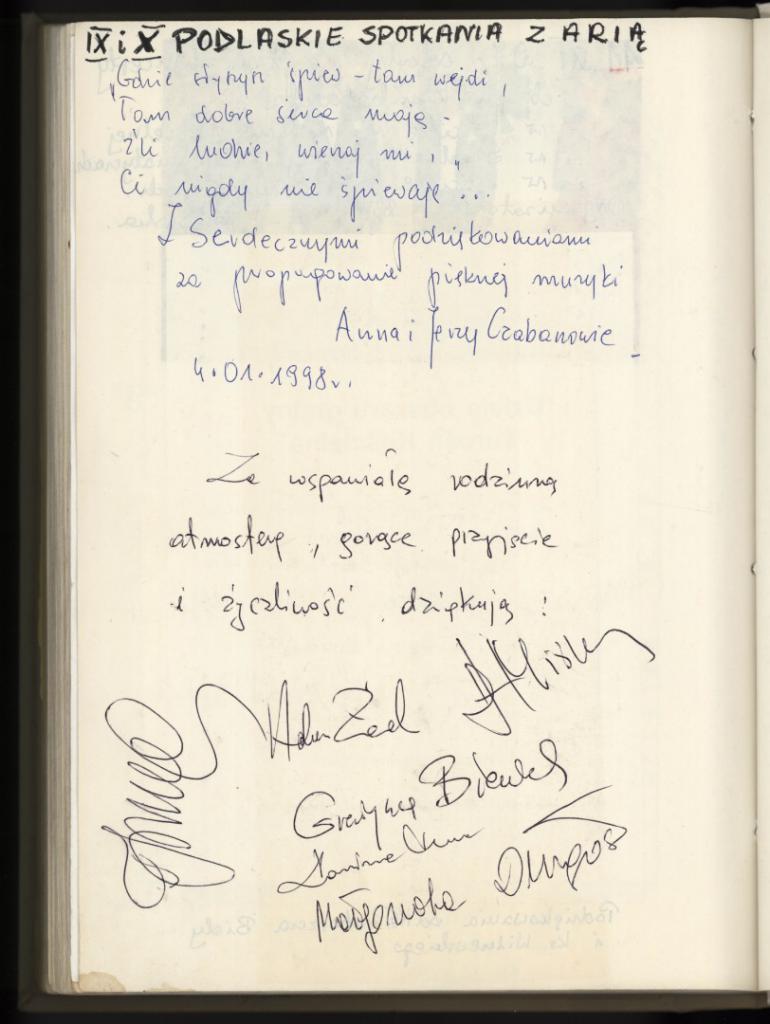 IX i X PODLASKIE SPOTKANIA Z ARIĄ
„Gdzie słyszysz śpiew – tam wejdź,
Tam dobre serca mają –
Źli ludzie, wierzaj mi, „
Ci nigdy nie śpiewają ...
Z Serdecznymi podziękowaniami
za propagowanie pięknej muzyki
Anna i Jerzy Czabanowie
4.01.1998r.
Za wspaniałą rodzinną
atmosferę, gorące przyjęcie
i życzliwość dziękują:
Grażyna
Małgorzata Długosz